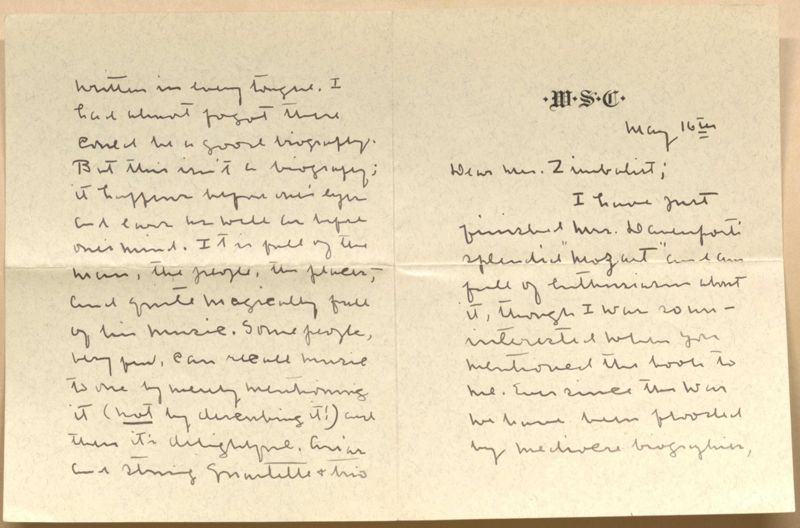 ·W·S·C·
May 16th
Dear Mrs. Zimbalist;
I have just
finished Mrs. Davenport's
splendid "Mozart" and am
full of enthusiasm about
it, though I was so un-
interested when you
mentioned the book to
me. Ever since the War
we have been flooded
by mediocre biographies,
written in every tongue. I
had almost forgot there
could be a good biography.
But this isn't a biography;
it happens before one's eyes
and ears as well as before
one's mind. It is full of the
man, the people, the places,
and quite magically full
of his music. Some people,
very few, can recall music
to one by merely mentioning
it (not by describing it!) and
then it's delightful. Arias
and string quartette & trio